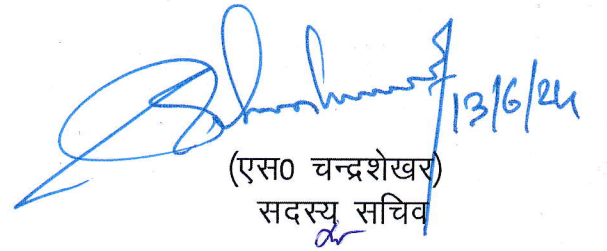 13/6/24
(एस0 चन्द्रशेखर)
सदस्य सचिव